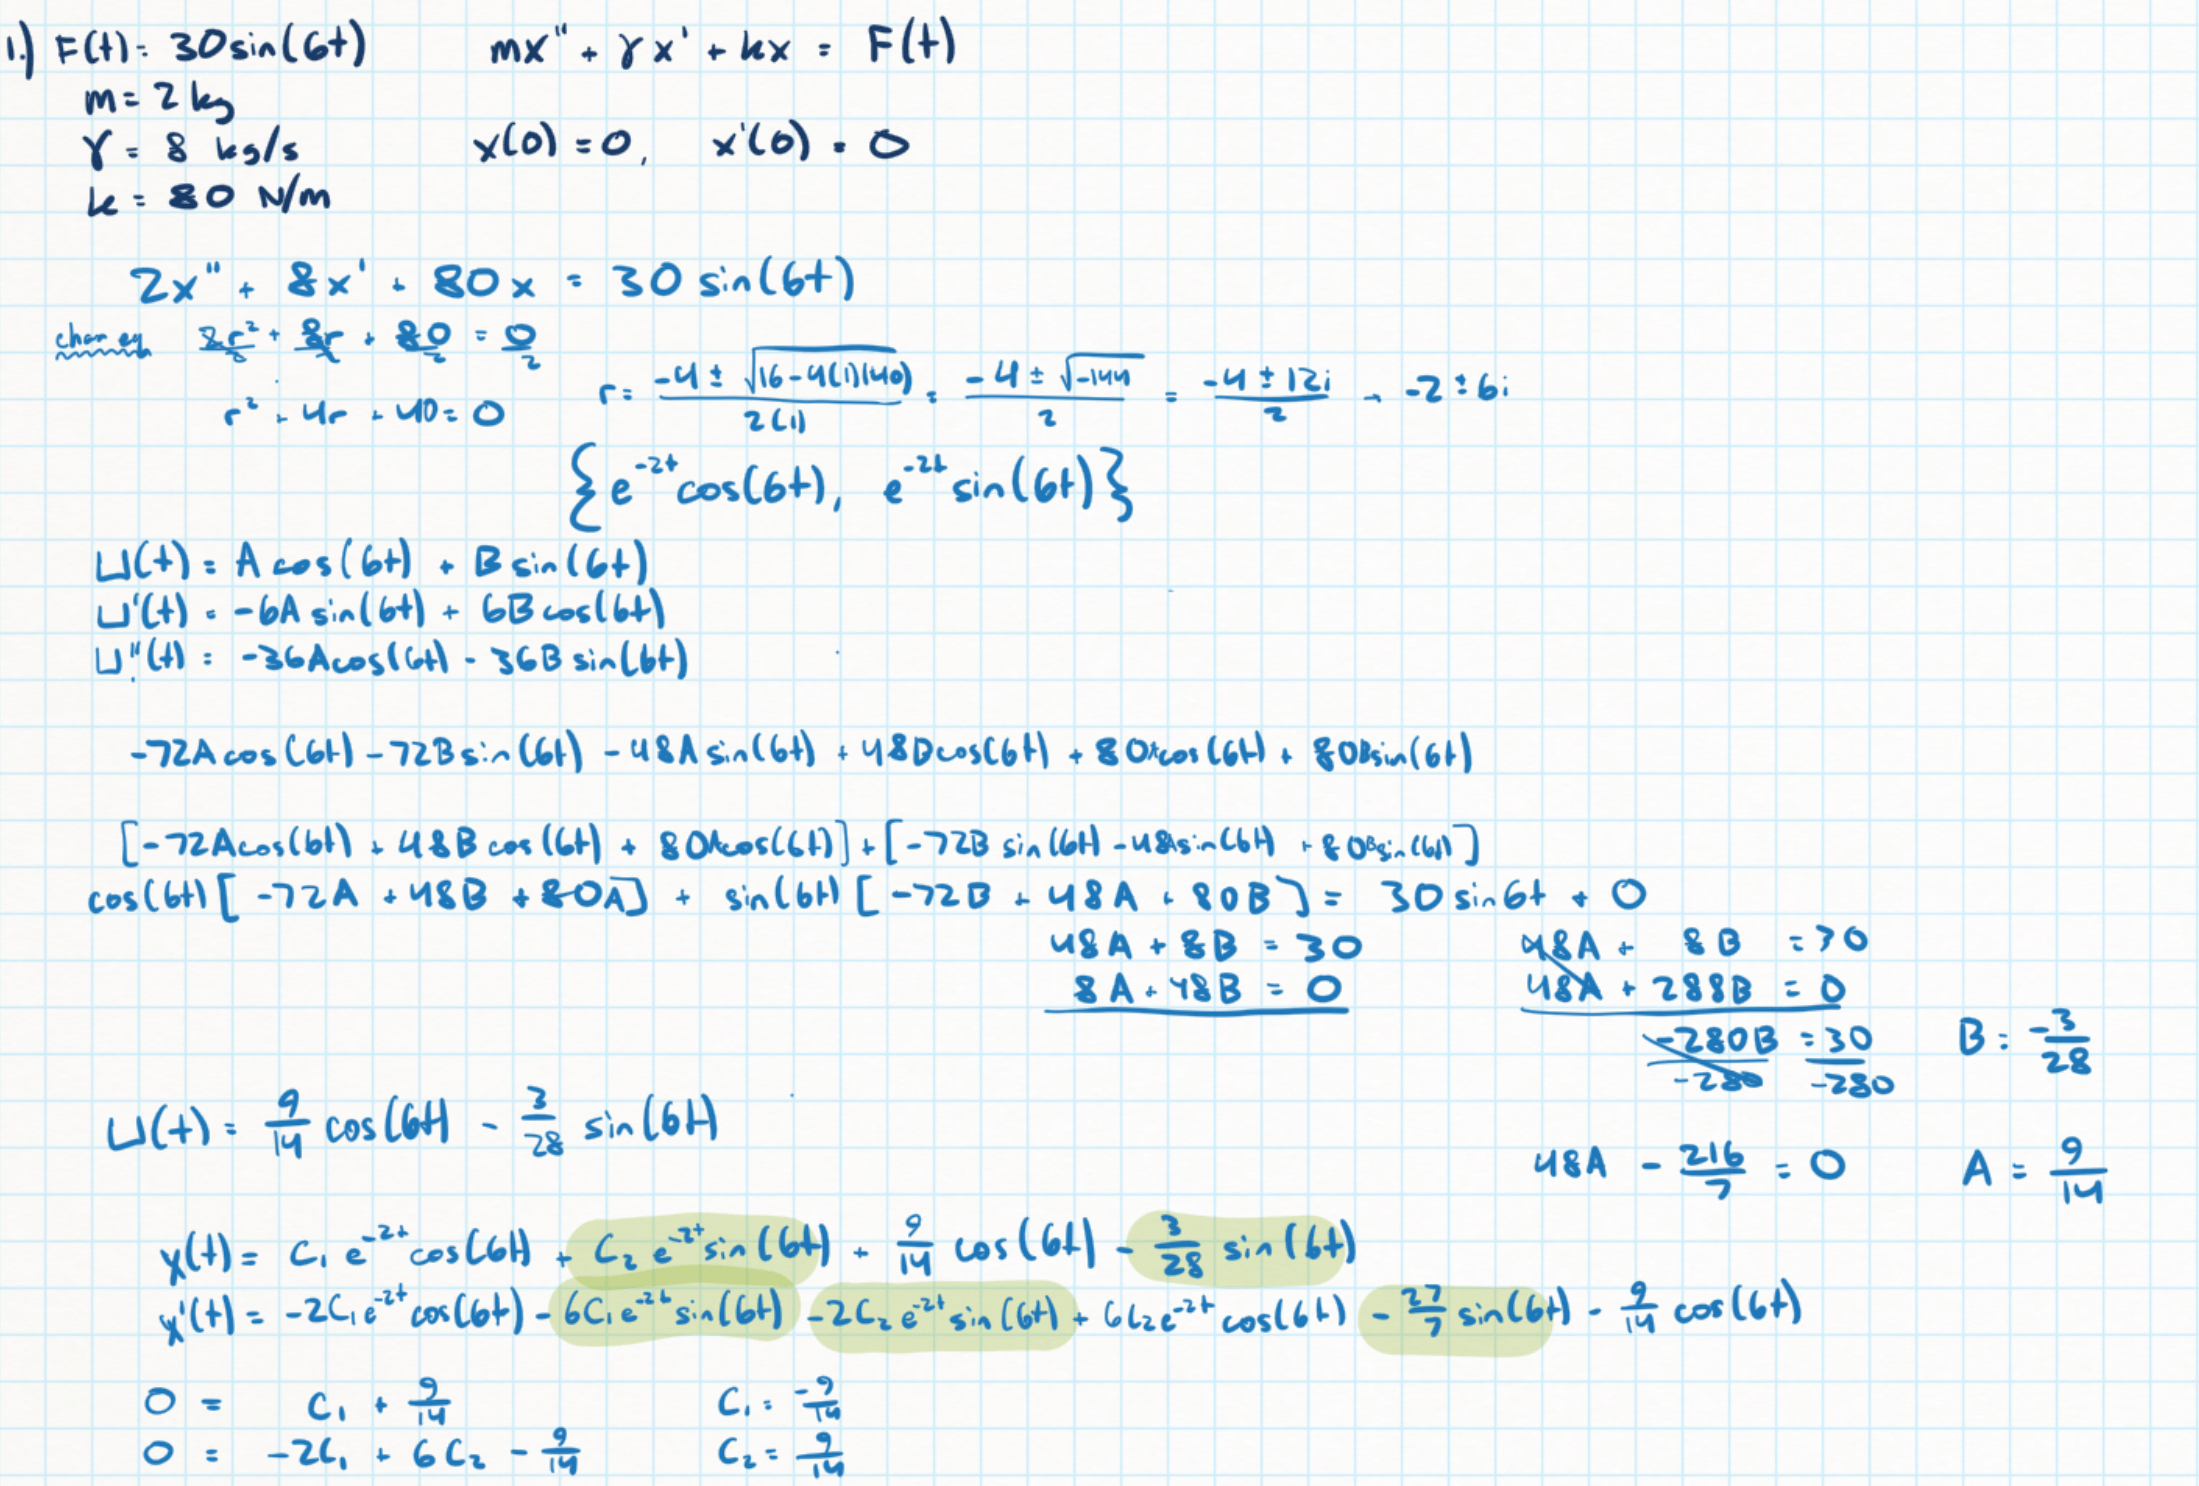 1.) F(t) = 30 sin(6t) mx'' + γx' + kx = F(t)
m = 2 kg
γ = 8 kg/s x(0) = 0, x'(0) = 0
k = 80 N/m
2x'' + 8x' + 80x = 30 sin(6t)
char eq 2r²/2 + 8r/2 + 80/2 = 0/2
r² + 4r + 40 = 0 r = (-4 ± √(16 - 4(1)(40)))/2(1) = (-4 ± √-144)/2 = (-4 ± 12i)/2 → -2 ± 6i
{e^-2t cos(6t), e^-2t sin(6t)}
U(t) = A cos(6t) + B sin(6t)
U'(t) = -6A sin(6t) + 6B cos(6t)
U''(t) = -36A cos(6t) - 36B sin(6t)
-72A cos(6t) - 72B sin(6t) - 48A sin(6t) + 48B cos(6t) + 80A cos(6t) + 80B sin(6t)
[-72A cos(6t) + 48B cos(6t) + 80A cos(6t)] + [-72B sin(6t) - 48A sin(6t) + 80B sin(6t)]
cos(6t)[-72A + 48B + 80A] + sin(6t)[-72B + 48A + 80B] = 30 sin 6t + 0
48A + 8B = 30 48A + 8B = 30
8A + 48B = 0 48A + 288B = 0
-280B/-280 = 30/-280 B = -3/28
U(t) = 9/14 cos(6t) - 3/28 sin(6t)
48A - 216/7 = 0 A = 9/14
x(t) = C₁ e^-2t cos(6t) + C₂ e^-2t sin(6t) + 9/14 cos(6t) - 3/28 sin(6t)
x'(t) = -2C₁e^-2t cos(6t) - 6C₁e^-2t sin(6t) - 2C₂ e^-2t sin(6t) + 6C₂e^-2t cos(6t) - 27/7 sin(6t) - 9/14 cos(6t)
0 = C₁ + 9/14 C₁ = -9/14
0 = -2C₁ + 6C₂ - 9/14 C₂ = 9/14